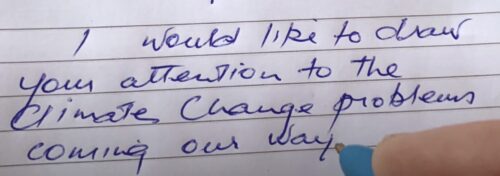 I would like to draw
your attention to the
Climate Change problems
coming our way